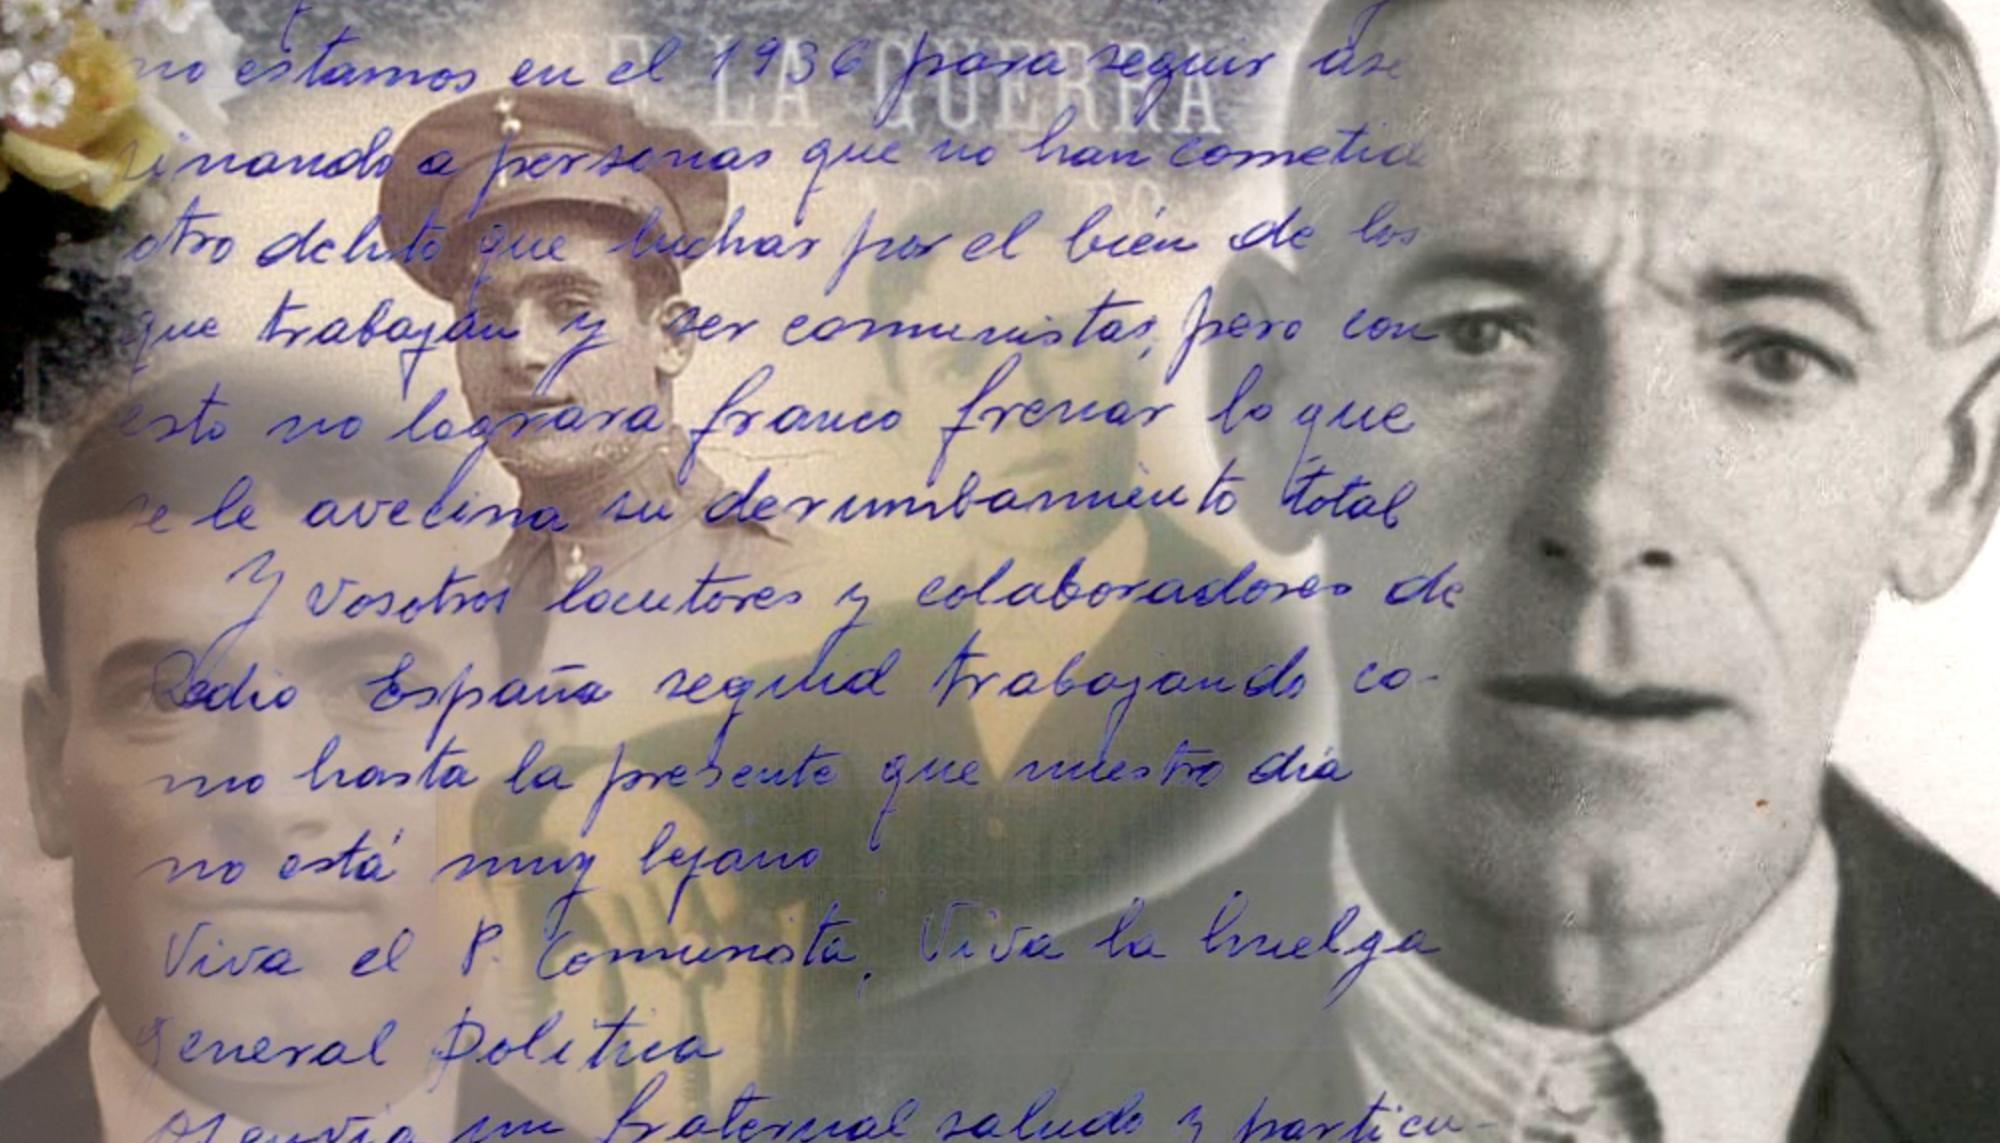 DE LA GUERRA
no estamos en el 1936 para seguir ase
sinando a personas que no han cometid
otro delito que luchar por el bién de los
que trabajan y ser comunistas, pero con
esto no lograra franco frenar lo que
se le avecina su derumbamiento total
Y vosotros locutores y colaboradores de
Radio España seguid trabajando co-
mo hasta la presente que nuestro dia
no está muy lejano
Viva el P. Comunista, Viva la huelga
general Politica
os envia un fraternal saludo y particu-